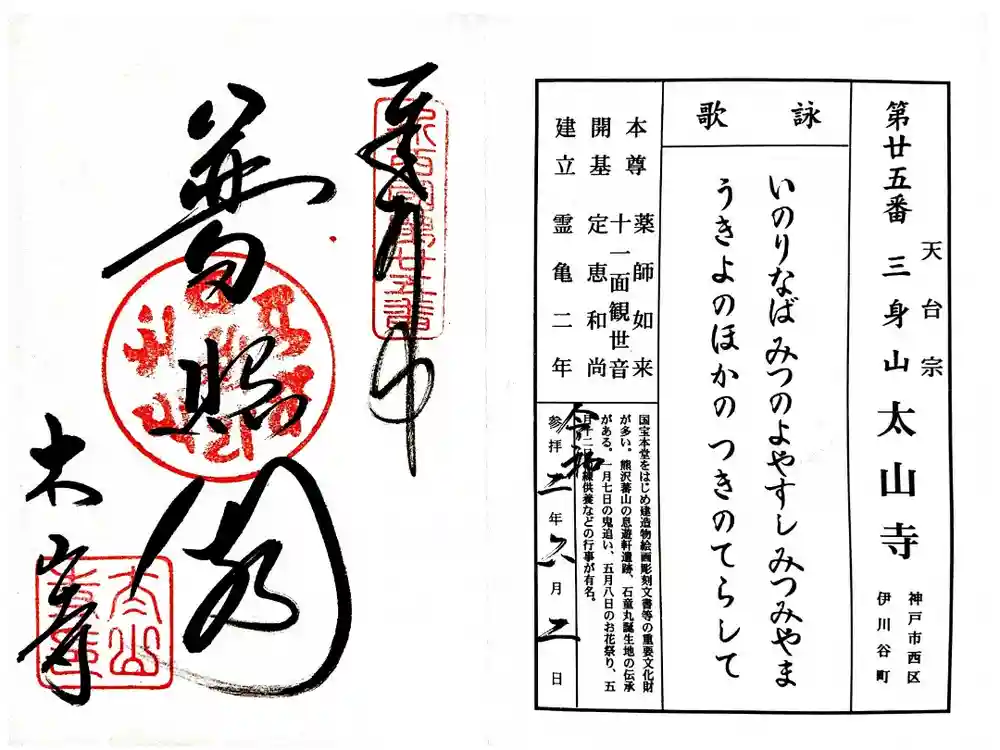 第廿五番 三身山 太山寺
天台宗
神戸市西区
伊川谷町
詠歌
いのりなば みつのよやすし みつみやま
うきよのほかの つきのてらして
本尊 薬師如来
十一面観世音
開基 定恵和尚
建立 霊亀二年
国宝本堂をはじめ建造物絵画彫刻文書等の重要文化財
が多い。熊沢蕃山の息遊軒遺跡、石童丸誕生地の伝承
がある。一月七日の鬼追い、五月八日のお花祭り、五
線供養などの行事が有名。
令和
参拝二年六月二日
新西国第廿五番
普照閣
太山